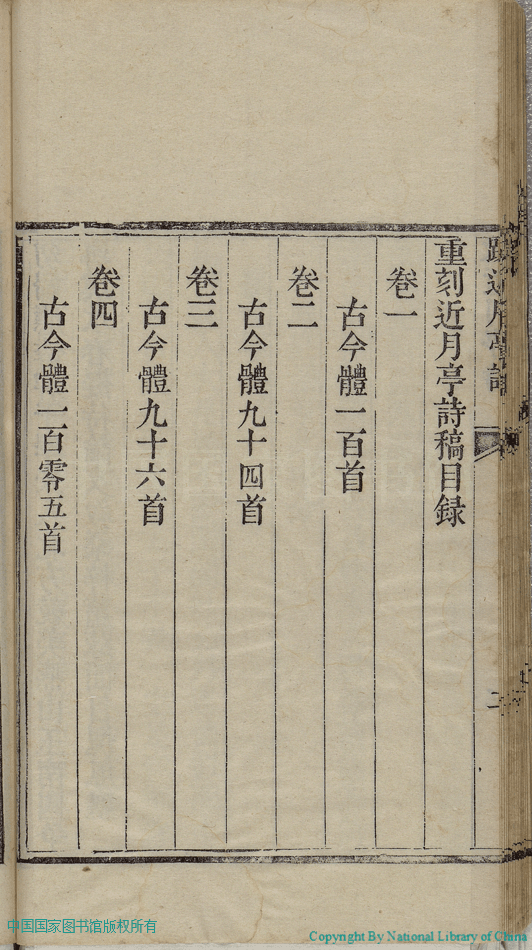 重刻近月亭詩稿目録
卷一
古今體一百首
卷二
古今體九十四首
卷三
古今體九十六首
卷四
古今體一百零五首
二
中国国家图书馆版权所有
Copyright By National Library of China